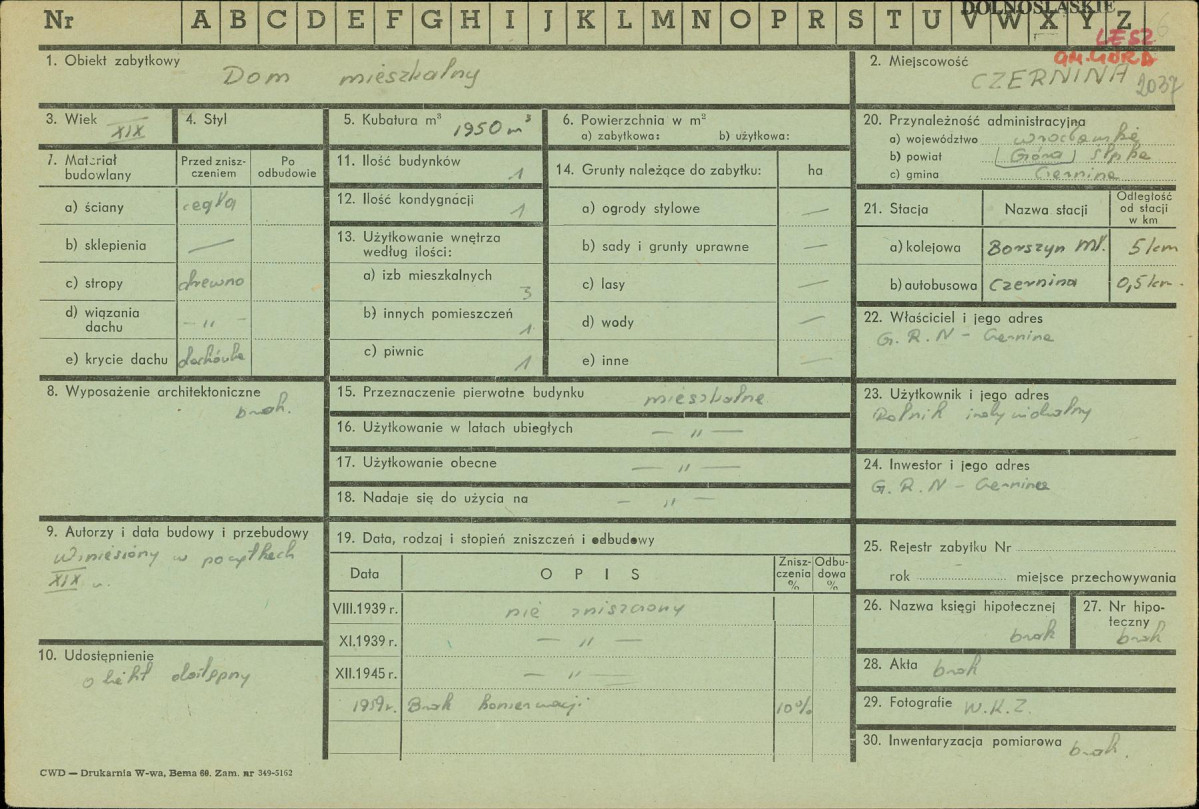 Nr A B C D E F G H I J K L M N O P R S T U V W X Y Z
DOLNOŚLĄSKIE
LESZ
GM. GÓRA
2037
1. Obiekt zabytkowy
Dom mieszkalny
2. Miejscowość
CZERNINA
3. Wiek
XIX
4. Styl
5. Kubatura m³
1950 m³
6. Powierzchnia w m²
a) zabytkowa: b) użytkowa:
20. Przynależność administracyjna
a) województwo wrocławskie
b) powiat (Góra) Śląska
c) gmina Czernina
7. Materiał budowlany
Przed zniszczeniem
Po odbudowie
a) ściany cegła
b) sklepienia —
c) stropy drewno
d) wiązania dachu — „ —
e) krycie dachu dachówka
11. Ilość budynków 1
12. Ilość kondygnacji 1
13. Użytkowanie wnętrza
według ilości:
a) izb mieszkalnych 3
b) innych pomieszczeń 1
c) piwnic 1
14. Grunty należące do zabytku: ha
a) ogrody stylowe —
b) sady i grunty uprawne —
c) lasy —
d) wody —
e) inne —
21. Stacja Nazwa stacji Odległość od stacji w km
a) kolejowa Borszyn Mł. 5 km
b) autobusowa Czernina 0,5 km.
22. Właściciel i jego adres
G. R. N – Czernina
8. Wyposażenie architektoniczne
brak.
15. Przeznaczenie pierwotne budynku mieszkalne
16. Użytkowanie w latach ubiegłych — „ —
17. Użytkowanie obecne — „ —
18. Nadaje się do użycia na — „ —
23. Użytkownik i jego adres
Rolnik indywidualny
24. Inwestor i jego adres
G. R. N – Czernina
9. Autorzy i data budowy i przebudowy
Wzniesiony w początkach
XIX w.
19. Data, rodzaj i stopień zniszczeń i odbudowy
Data OPIS Zniszczenia % Odbudowa %
VIII.1939 r. nie zniszczony
XI.1939 r. — „ —
XII.1945 r. — „ —
1959 r. Brak konserwacji 10%
25. Rejestr zabytku Nr
rok miejsce przechowywania
26. Nazwa księgi hipotecznej
brak
27. Nr hipoteczny
brak
10. Udostępnienie
obiekt dostępny
28. Akta brak
29. Fotografie W.K.Z.
30. Inwentaryzacja pomiarowa brak.
CWD — Drukarnia W-wa, Bema 60. Zam. nr 349-5162